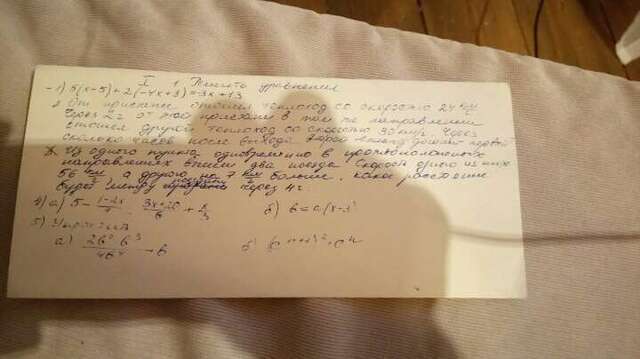 I 1 Решить уравнения
1) 5(x-5)+2(-4x+3)=-3x+13
2 От пристани отошел теплоход со скоростью 24 км/ч
Через 2 ч от той пристани в том же направлении
отошел другой теплоход со скоростью 30 км/ч. Через
сколько часов после выхода второй теплоход догонит первый
3. Из одного пункта одновременно в противоположных
направлениях вышли два поезда. Скорость одно из них
56 км/ч, а другого на 7 км/ч больше. Какое расстояние
будет между поездами через 4 ч.
4) а) 5 - (1-2x)/4 = (3x+20)/6 + x/3 б)
5) Упростить
а) б)